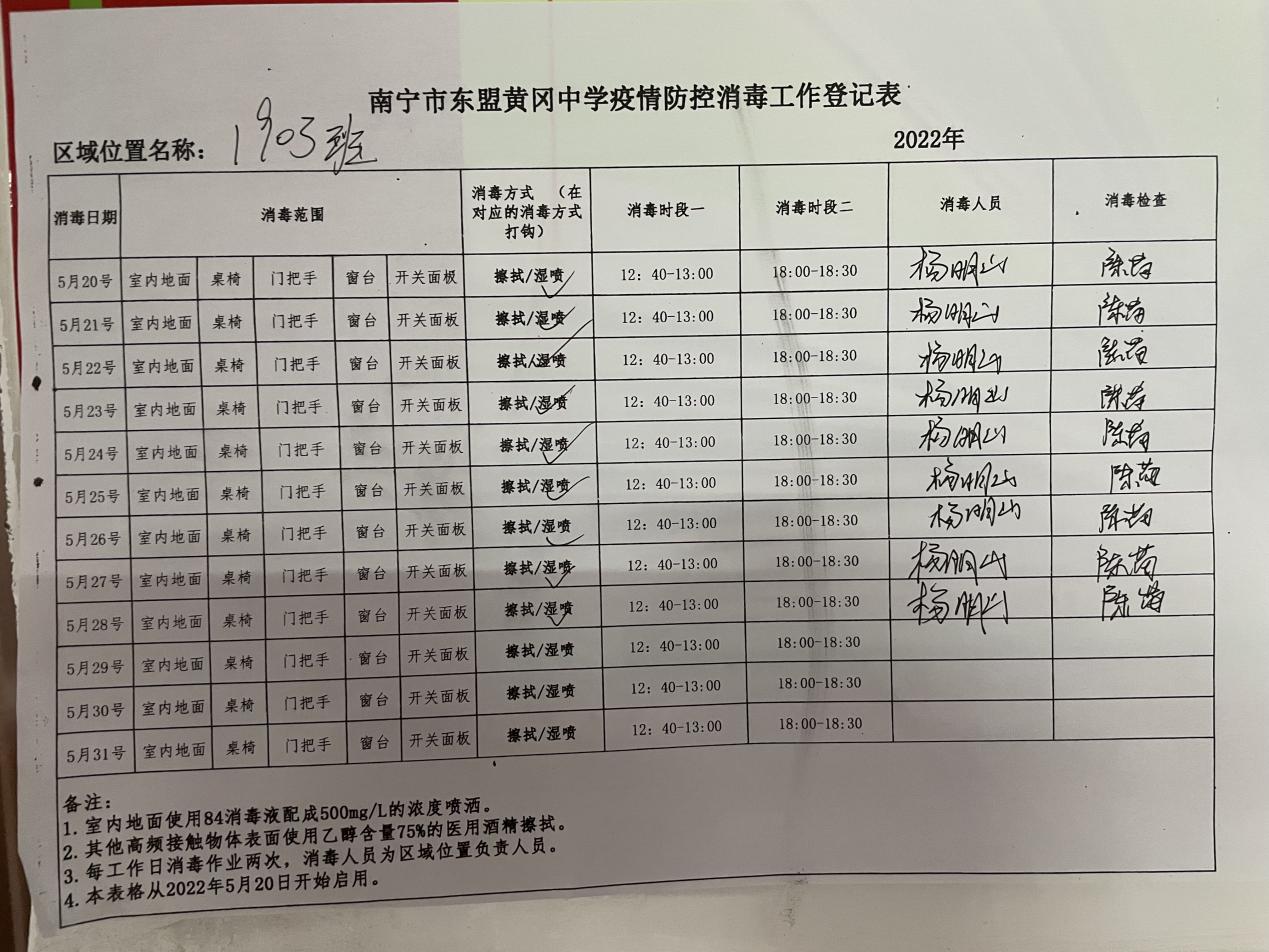 南宁市东盟黄冈中学疫情防控消毒工作登记表
区域位置名称：1903班 2022年
消毒日期 消毒范围 消毒方式 （在对应的消毒方式打钩） 消毒时段一 消毒时段二 消毒人员 消毒检查
5月20号 室内地面 桌椅 门把手 窗台 开关面板 擦拭/湿喷 ✓ 12：40-13:00 18:00-18:30 杨明山
5月21号 室内地面 桌椅 门把手 窗台 开关面板 擦拭/湿喷 ✓ 12：40-13:00 18:00-18:30 杨明山
5月22号 室内地面 桌椅 门把手 窗台 开关面板 擦拭/湿喷 ✓ 12：40-13:00 18:00-18:30 杨明山
5月23号 室内地面 桌椅 门把手 窗台 开关面板 擦拭/湿喷 ✓ 12：40-13:00 18:00-18:30 杨明山
5月24号 室内地面 桌椅 门把手 窗台 开关面板 擦拭/湿喷 ✓ 12：40-13:00 18:00-18:30 杨明山
5月25号 室内地面 桌椅 门把手 窗台 开关面板 擦拭/湿喷 ✓ 12：40-13:00 18:00-18:30 杨明山
5月26号 室内地面 桌椅 门把手 窗台 开关面板 擦拭/湿喷 ✓ 12：40-13:00 18:00-18:30 杨明山
5月27号 室内地面 桌椅 门把手 窗台 开关面板 擦拭/湿喷 ✓ 12：40-13:00 18:00-18:30 杨明山
5月28号 室内地面 桌椅 门把手 窗台 开关面板 擦拭/湿喷 ✓ 12：40-13:00 18:00-18:30 杨明山
5月29号 室内地面 桌椅 门把手 窗台 开关面板 擦拭/湿喷 12：40-13:00 18:00-18:30
5月30号 室内地面 桌椅 门把手 窗台 开关面板 擦拭/湿喷 12：40-13:00 18:00-18:30
5月31号 室内地面 桌椅 门把手 窗台 开关面板 擦拭/湿喷 12：40-13:00 18:00-18:30
备注：
1. 室内地面使用84消毒液配成500mg/L的浓度喷洒。
2. 其他高频接触物体表面使用乙醇含量75%的医用酒精擦拭。
3. 每工作日消毒作业两次，消毒人员为区域位置负责人员。
4. 本表格从2022年5月20日开始启用。